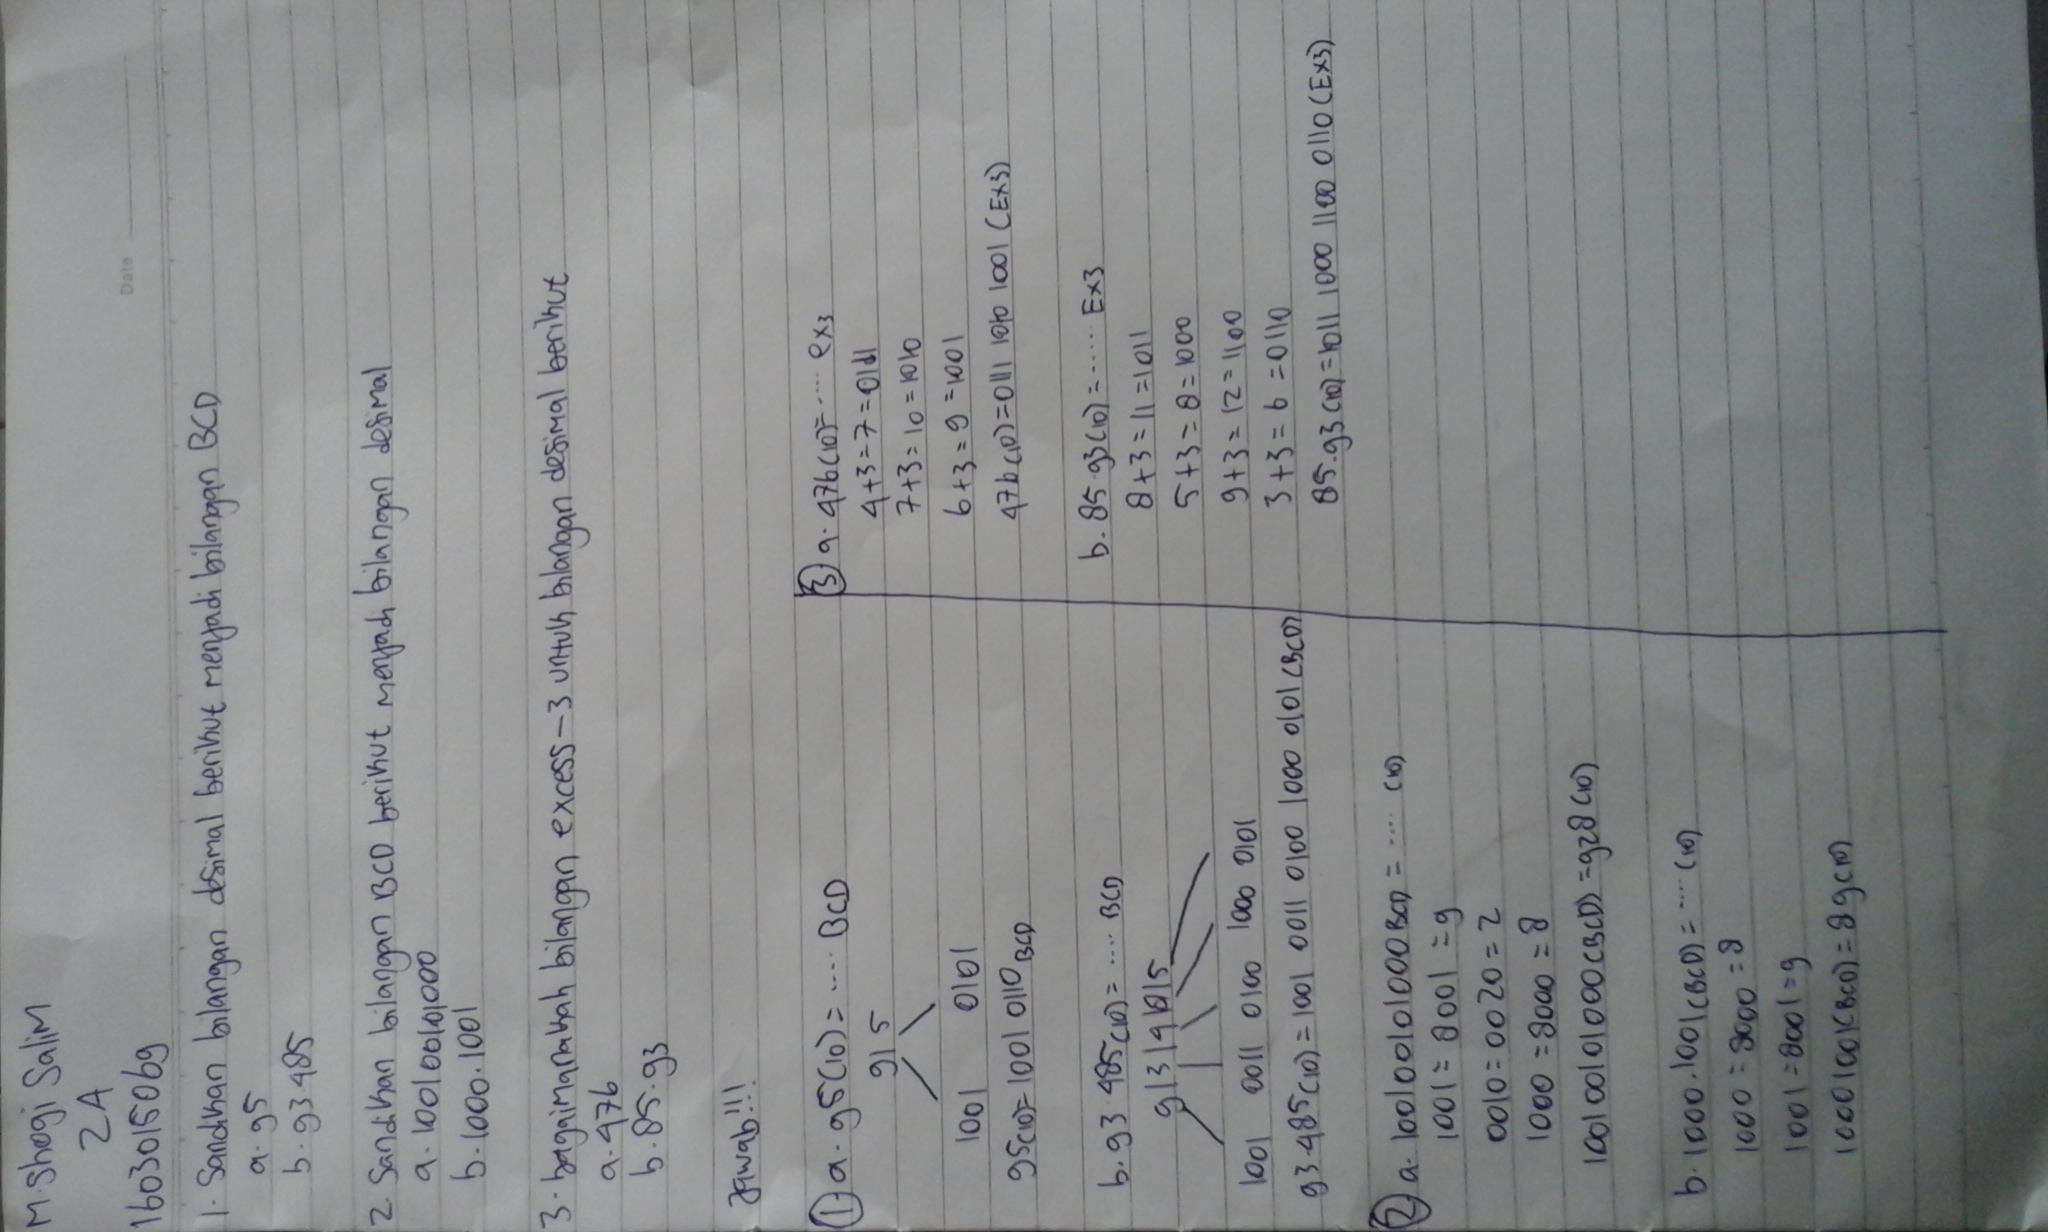 M. Shogi Salim
2A
1603015069
Date
1. Sandikan bilangan desimal berikut menjadi bilangan BCD
a. 95
b. 93.485
2. Sandikan bilangan BCD berikut menjadi bilangan desimal
a. 100100101000
b. 1000.1001
3. bagaimanakah bilangan excess-3 untuk bilangan desimal berikut
a. 476
b. 85.93
Jawab!!!
1. a. 95(10) = .... BCD
9|5
1001 0101
95(10) = 1001 0110 BCD
b. 93.485(10) = .... BCD
9|3|4|8|5
1001 0011 0100 1000 0101
93.485(10) = 1001 0011 0100 1000 0101 (BCD)
2 a. 100100101000 BCD = .... (10)
1001 = 8001 = 9
0010 = 0020 = 2
1000 = 8000 = 8
100100101000 (BCD) = 928 (10)
b. 1000.1001 (BCD) = .... (10)
1000 = 8000 = 8
1001 = 8001 = 9
10001001 (BCD) = 89 (10)
3 a. 476(10) = .... ex3
4+3=7=0111
7+3=10=1010
6+3=9=1001
476(10) = 0111 1010 1001 (EX3)
b. 85.93(10) = ..... EX3
8+3=11=1011
5+3=8=1000
9+3=12=1100
3+3=6=0110
85.93(10) = 1011 1000 1100 0110 (EX3)